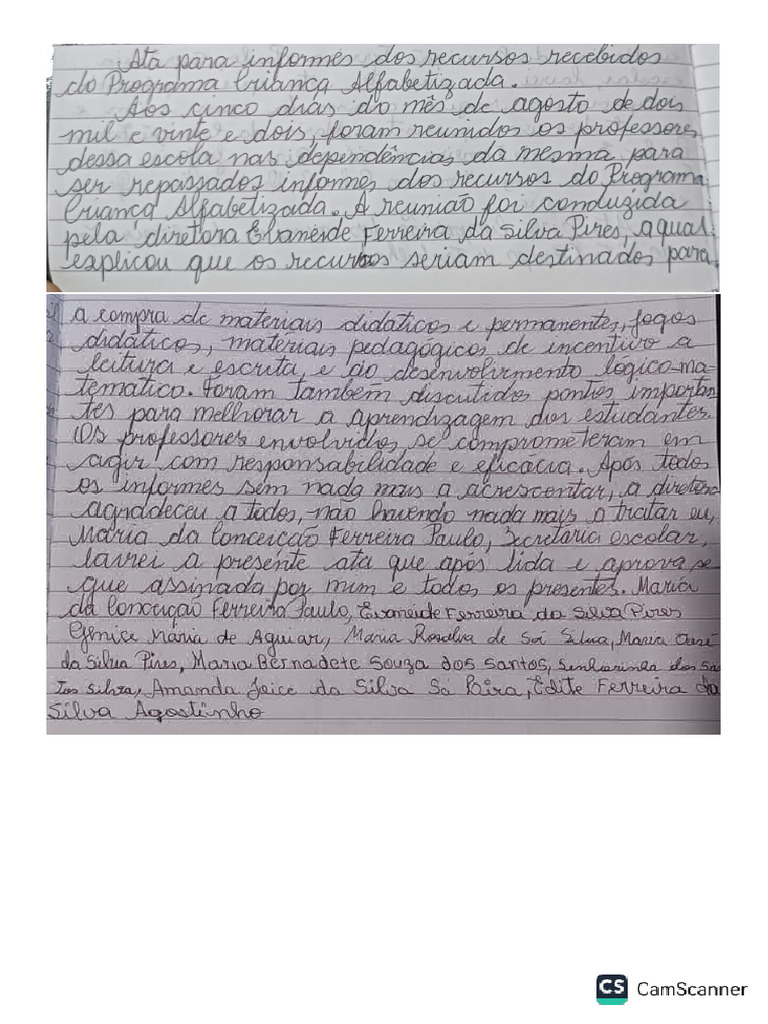 Ata para informes dos recursos recebidos
do Programa Criança Alfabetizada.
Aos cinco dias do mês de agosto de dois
mil e vinte e dois, foram reunidos os professores
dessa escola nas dependências da mesma para
ser repassados informes dos recursos do Programa
Criança Alfabetizada. A reunião foi conduzida
pela diretora Evaneide Ferreira da Silva Pires, a qual
explicou que os recursos seriam destinados para
a compra de materiais didáticos e permanentes, jogos
didáticos, materiais pedagógicos de incentivo a
leitura e escrita, e ao desenvolvimento lógico-ma
temático. Foram também discutidos pontos importan
tes para melhorar a aprendizagem dos estudantes.
Os professores envolvidos, se comprometeram em
agir com responsabilidade e eficácia. Após todos
os informes sem nada mais a acrescentar, a diretora
agradeceu a todos, não havendo nada mais a tratar eu,
Maria da Conceição Ferreira Paulo, Secretária escolar,
lavrei a presente ata que após lida e aprova se
que assinada por mim e todos os presentes. Maria
da Conceição Ferreira Paulo, Evaneide Ferreira da Silva Pires
Maria de Aguiar, Maria Rosalva de Sá Silva, Maria
da Silva Pires, Maria Bernadete Souza dos Santos, dos San
tos Silva, Amanda Joice da Silva Sá Bira, Edite Ferreira da
Silva Agostinho
CS CamScanner